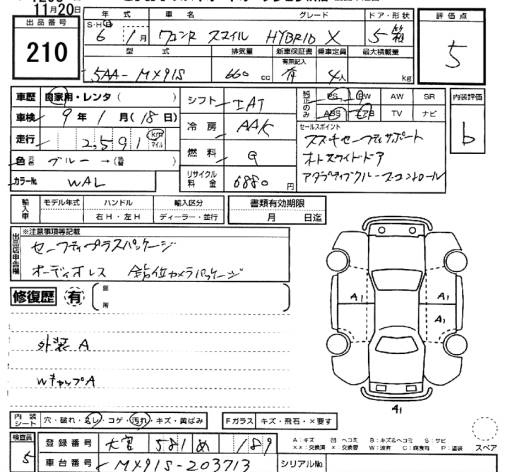 11月20日
出品番号 年式 車名 グレード ドア・形状 評価点
210
S・H・R 6年 1月 ワゴンR スマイル HYBRID X 5 箱 5
型式 排気量 新車保証書 乗車定員 最大積載量
有無記入
5AA-MX91S 660cc 有 4人 kg
車歴 自家用・レンタ( ) シフト IAT 純正のみ PS PW AW SR 内装評価
車検 9年 1月(18日) ABS エアB TV ナビ b
走行 2,591 km マイル 冷房 AAC セールスポイント
色 ブルー→(番) 燃料 G スズキセーフティサポート
カラーNo. WAL リサイクル料金 6880円 両トスライドドア
アダプティブクルーズコントロール
輸入車 モデル年式 ハンドル 輸入区分 書類有効期限
右H・左H ディーラー・並行 月 日迄
出品店申告欄 ※注意事項等記載
セーフティプラスパッケージ
オーディオレス 全方位カメラパッケージ
修復歴 有 ( 箇所 )
外装A
WキャップA
A1 A1
A1
内装シート 穴・破れ・スレ・コゲ・汚れ・キズ・黄ばみ Fガラス キズ・飛石・×要す
検査員 5 登録番号 大宮 581 め 189
A:キズ 凹:ヘコミ B:キズ&ヘコミ S:サビ
××:交換済 ×:要交換 W:波有 C:腐食有 P:塗装 スペア
車台番号 MX91S-203713 シリアルNo.